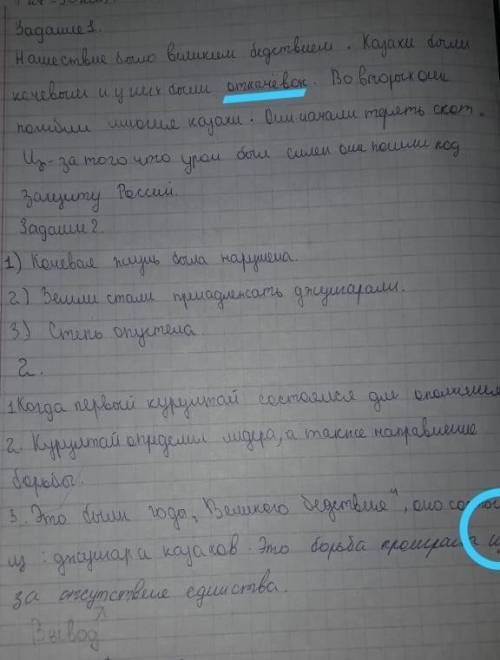 Задание 1.
Нашествие было великим бедствием. Казахи были
кочевым и у них были откочёвок. Во вторых они
погибли многие казахи. Они начали терять скот.
Из-за того что урон был силен они пошли под
защиту Россий.
Задание 2.
1) Кочевая жизнь была нарушена.
2) Земли стали принадлежать джунгарами.
3) Степь опустела.
2.
1 Когда первый курултай состоялся для
2. Курултай определил лидера, а также направление
борьбы.
3. Это были годы "Великого бедствия", оно
из: джунгар и казахов. Это борьба
за отсутствие единства.
Вывод